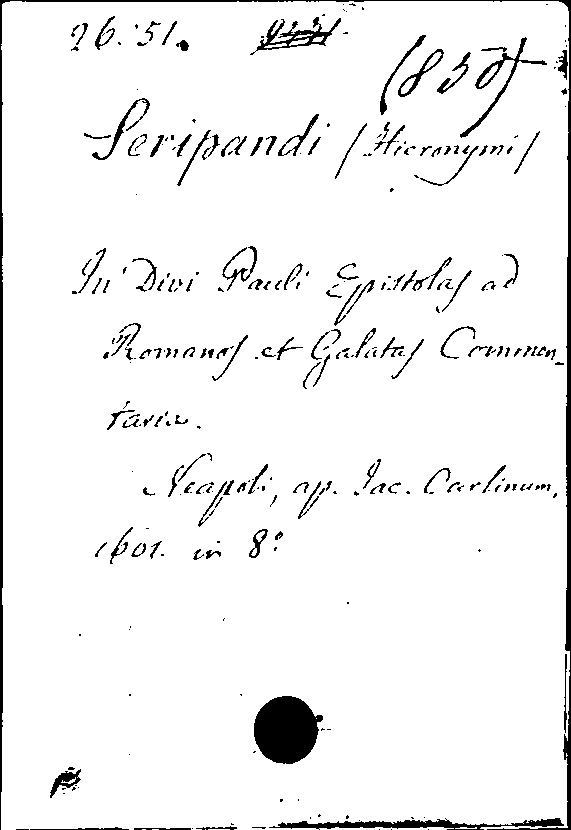 26.51.
(850)
Seripandi (Hieronymi)
In Divi Pauli Epistolas ad
Romanos et Galatas Commen-
taria.
Neapoli, ap. Jac. Carlinum,
1601. in 8º